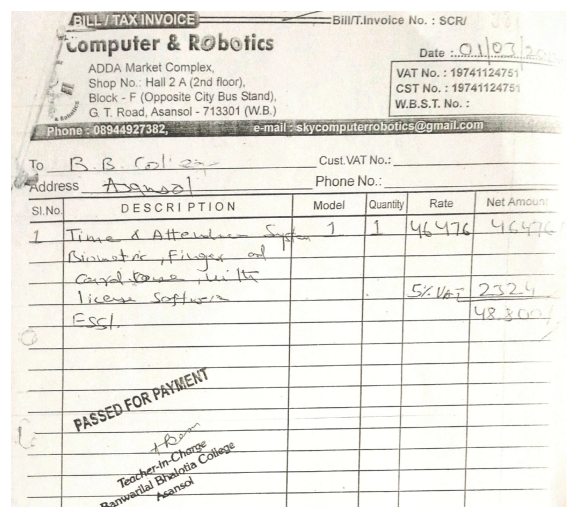 BILL / TAX INVOICE
Bill/T.Invoice No. : SCR/
Computer & Robotics
Date : 01/03/
ADDA Market Complex,
Shop No.: Hall 2 A (2nd floor),
Block - F (Opposite City Bus Stand),
G. T. Road, Asansol - 713301 (W.B.)
VAT No. : 19741124751
CST No. : 19741124751
W.B.S.T. No. :
Phone : 08944927382, e-mail : skycomputerrobotics@gmail.com
To B. B. College Cust.VAT No.:
Address Asansol Phone No.:
Sl.No. DESCRIPTION Model Quantity Rate Net Amount
1 Time & Attendance System 1 1 46476 46476/
Biometric, Finger and
card base with
license Software 5% VAT 2324
ESSL. 48.800/
PASSED FOR PAYMENT
Teacher-In-Charge
Banwarilal Bhalotia College
Asansol